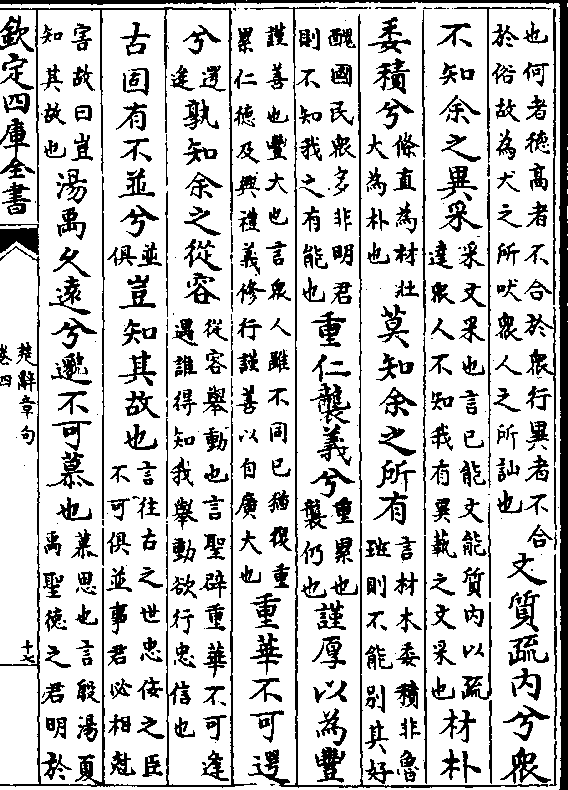 也何者德高者不合於衆行異者不合於俗故為犬之所吠衆人之所訕也文質疏内兮衆
不知余之異采采文采也言己能文能質内以疏達衆人不知我有異藝之文采也材朴
委積兮條直為材壯大為朴也莫知余之所有言材木委積非魯班則不能别其好
醜國民衆多非明君則不知我之有能也重仁襲義兮重累也襲仍也謹厚以為豐
謹善也豐大也言衆人雖不同己猶復重累仁德及興禮義修行謹善以自廣大也重華不可遻
兮遻逢孰知余之從容從容舉動也言聖辟重華不可逢遇誰得知我舉動欲行忠信也
古固有不並兮並俱豈知其故也言往古之世忠佞之臣不可俱並事君必相尅
害故曰豈知其故也湯禹久遠兮邈不可慕也慕思也言殷湯夏禹聖德之君明於
欽定四庫全書
楚辭章句
卷四
十七